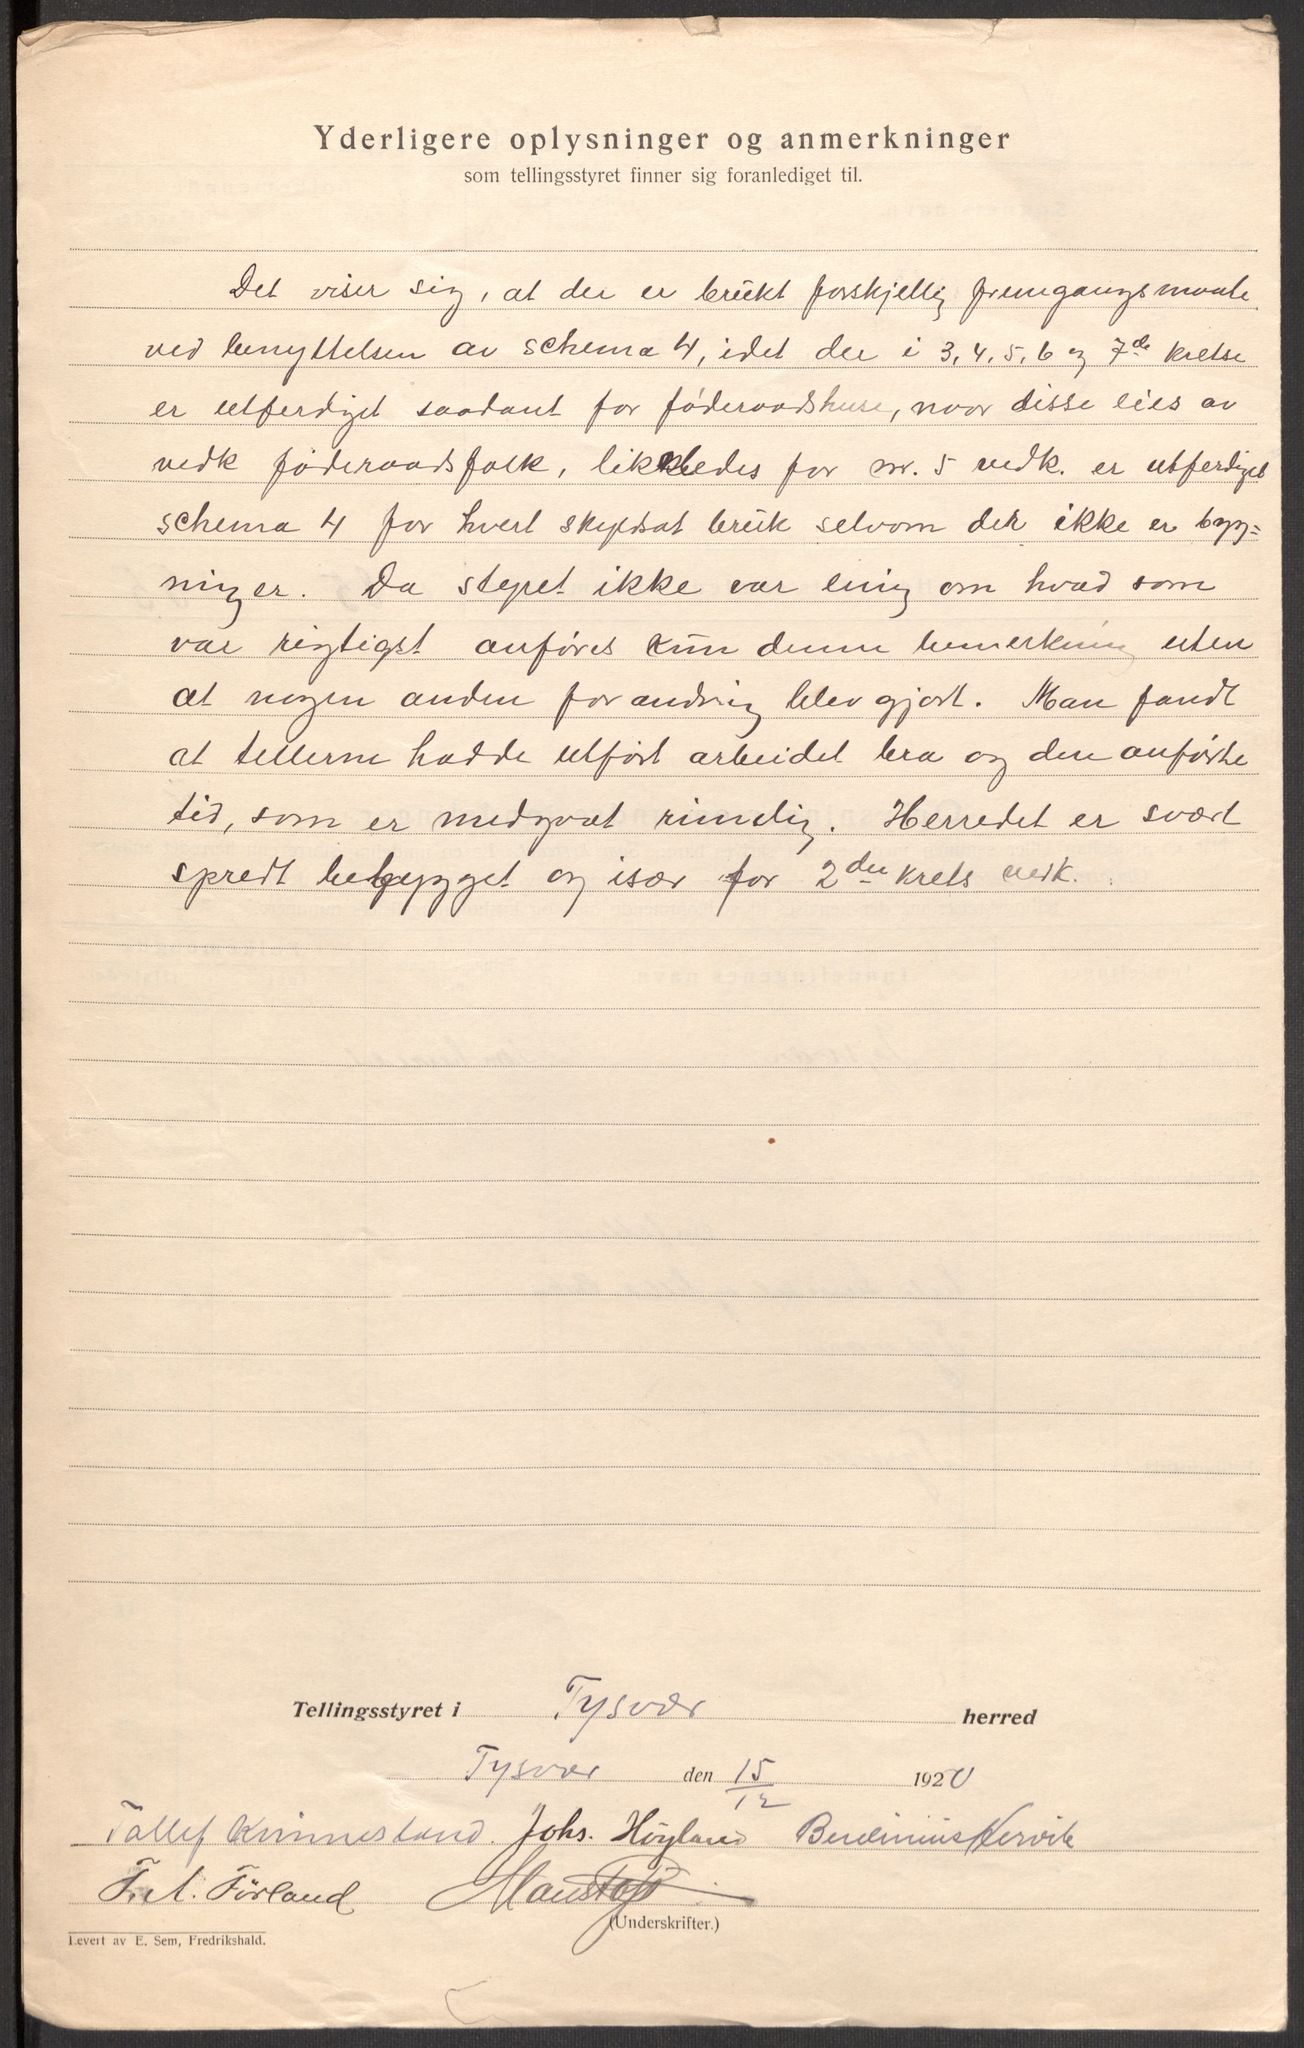 Yderligere oplysninger og anmerkninger
som tellingsstyret finner sig foranlediget til.
Det viser sig, at der er brukt forskjellig fremgangsmaate
ved benyttelsen av schema 4, idet der i 3, 4, 5, 6 og 7de kretse
er utferdiget saadant for føderaadshuse, naar disse eies av
vedk føderaadsfolk, likeledes for nr. 5 vedk. er utferdiget
schema 4 for hvert skyldsat bruk selvom der ikke er byg=
ninger. Da styret ikke var enig om hvad som
var rigtigst anføres kun denne bemerkning uten
at nogen anden forandring blev gjort. Man fandt
at tellerne hadde utført arbeidet bra og den anførte
tid, som er medgaat rimelig. Herredet er svært
spredt bebygget og især for 2den krets vedk.
Tellingsstyret i Tysvær herred
Tysvær den 15/12 1920
Tollef Kvinnesland. Johs. Høyland Berdinius Kervik
Førland
(Underskrifter.)
Levert av E. Sem, Fredrikshald.